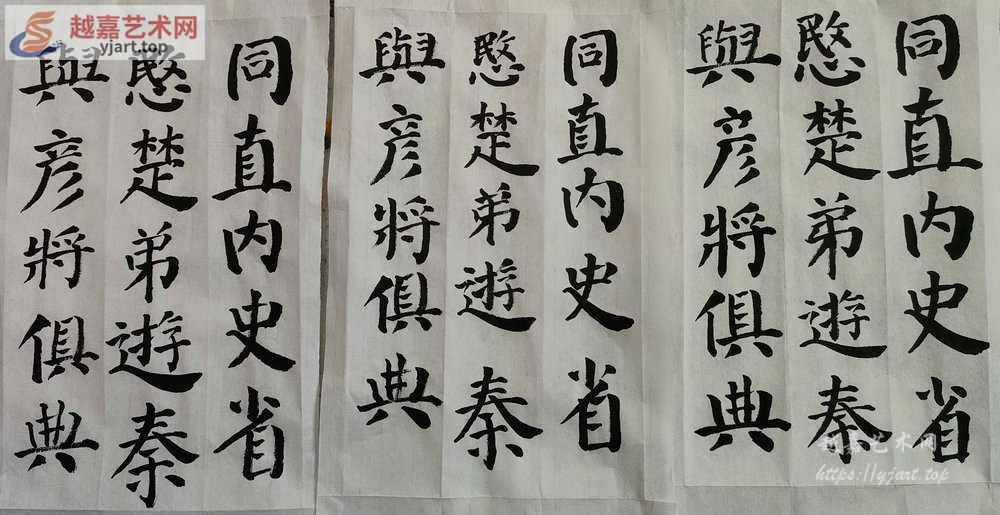 越嘉艺术网
yjart.top
同直内史省
愍楚弟遊秦
與彦將俱典
同直内史省
愍楚弟遊秦
與彦將俱典
同直内史省
愍楚弟遊秦
與彦將俱典
越嘉艺术网
https://yjart.top